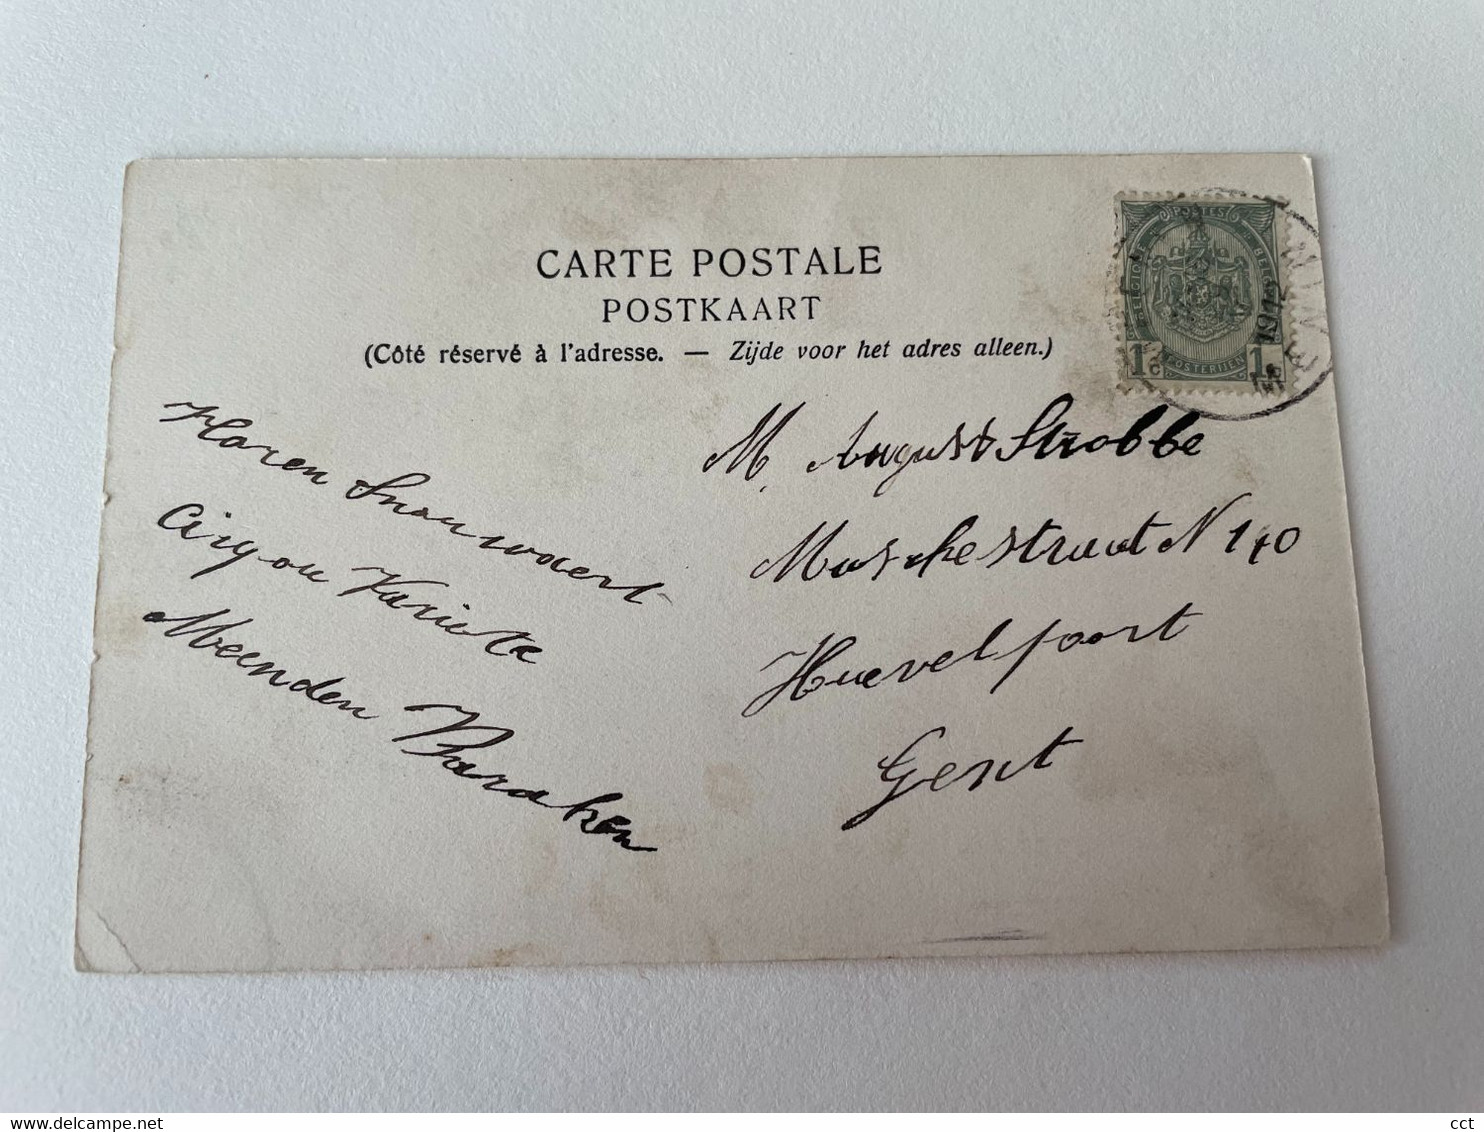 CARTE POSTALE
POSTKAART
(Côté réservé à l'adresse. — Zijde voor het adres alleen.)
POSTES
BELGIQUE BELGIË
1c 1c
POSTERIJEN
1912
Floren Snouwaert
Meenden Baraken
M. August Strobbe
Muschestraat N 140
Huevelpoort
Gent
delcampe.net
cct